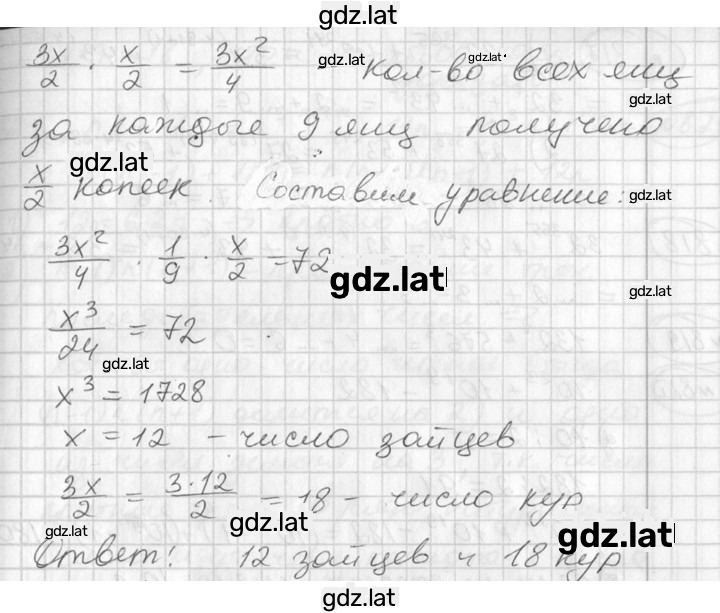 gdz.lat
3x/2 · x/2 = 3x²/4 - gdz.lat кол-во gdz.lat всех яиц
gdz.lat
за каждые 9 яиц получено
gdz.lat
x/2 копеек. Составим уравнение: gdz.lat
3x²/4 · 1/9 · x/2 = 72
gdz.lat gdz.lat
x³/24 = 72
gdz.lat
x³ = 1728
x = 12 - число зайцев
3x/2 = 3·12/2 = 18 - число кур
gdz.lat gdz.lat gdz.lat
Ответ: 12 зайцев и 18 кур
gdz.lat